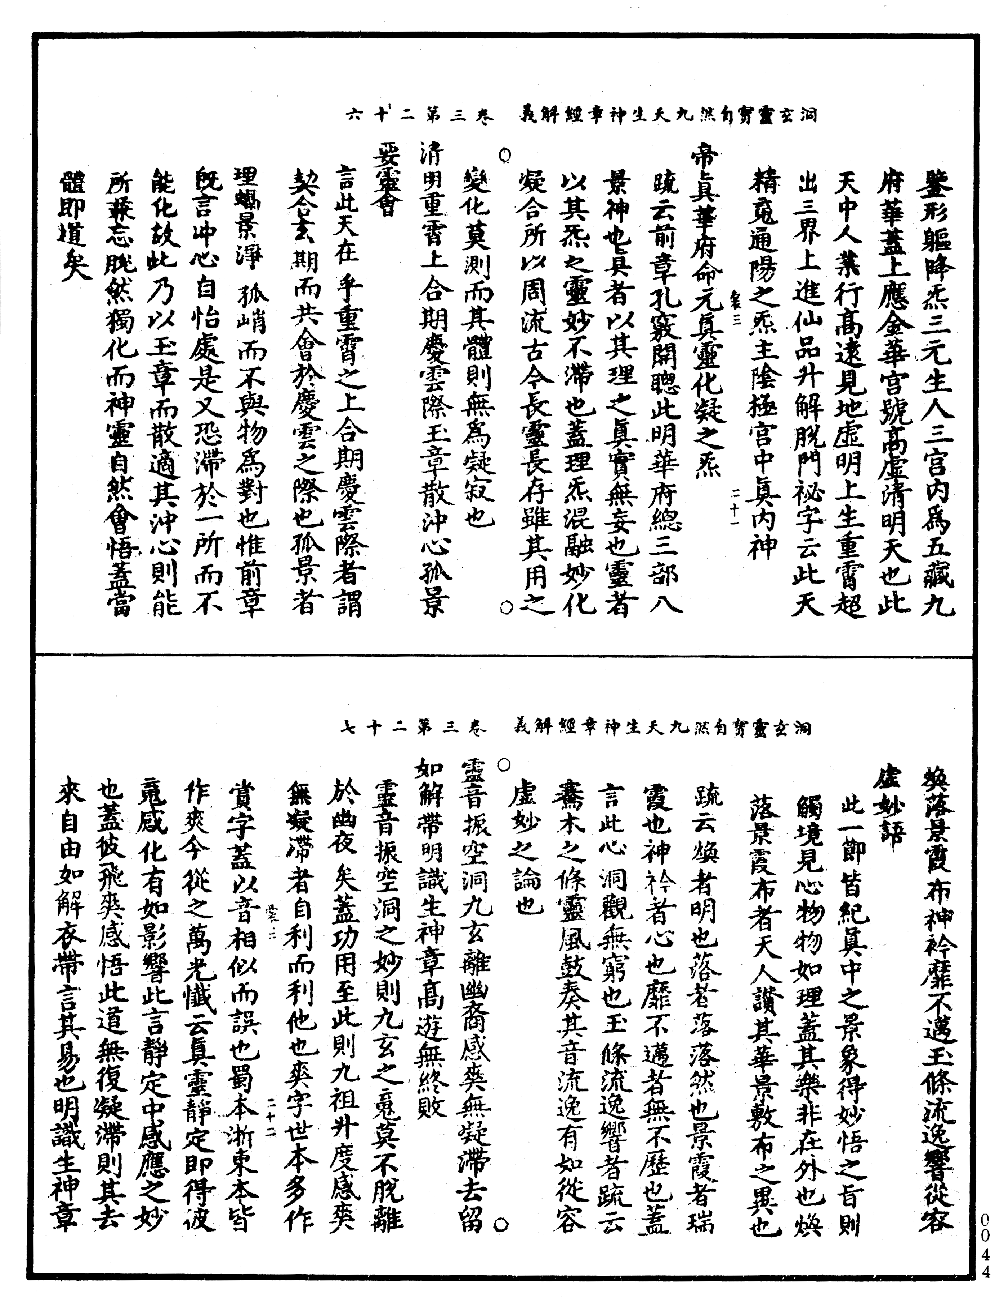 洞玄靈寶自然九天生神章經解義　卷三第二十六
鑒形軀降炁三元生人三宮內爲五藏九
府華蓋上應金華宮號高虛清明天也此
天中人業行高遠見地虛明上生重霄超
出三界上進仙品升解脫門祕字云此天
精䰟通陽之炁主陰極宮中眞內神
卷三　二十一
帝眞華府命元眞靈化凝之炁
疏云前章孔竅開聰此明華府總三部八
景神也眞者以其理之眞實無妄也靈者
以其炁之靈妙不滯也蓋理炁混融妙化
凝合所以周流古今長靈長存雖其用之
變化莫測而其體則無爲凝寂也
清明重霄上合期慶雲際玉章散沖心孤景
要靈會
言此天在乎重霄之上合期慶雲際者謂
契合玄期而共會於慶雲之際也孤景者
理融景淨孤峭而不與物爲對也惟前章
旣言沖心自怡處是又恐滯於一所而不
能化故此乃以玉章而散適其沖心則能
所兼忘脫然獨化而神靈自然會悟蓋當
體即道矣
洞玄靈寶自然九天生神章經解義　卷三第二十七
煥落景霞布神衿靡不邁玉條流逸響從容
虛妙語
此一節皆紀眞中之景象得妙悟之旨則
觸境見心物物如理蓋其樂非在外也煥
落景霞布者天人讚其華景敷布之異也
疏云煥者明也落者落落然也景霞者瑞
霞也神衿者心也靡不邁者無不歷也蓋
言此心洞觀無窮也玉條流逸響者疏云
騫木之條靈風鼓奏其音流逸有如從容
虛妙之論也
靈音振空洞九玄離幽裔感爽無凝滯去留
如解帶明識生神章高遊無終敗
靈音振空洞之妙則九玄之䰟莫不脫離
於幽夜矣蓋功用至此則九祖升度感爽
無凝滯者自利而利他也爽字世本多作
賞字蓋以音相似而誤也蜀本浙東本皆
卷三　二十二
作爽今從之萬光懺云眞靈靜定即得彼
䰟感化有如影響此言靜定中感應之妙
也蓋彼飛爽感悟此道無復凝滯則其去
來自由如解衣帶言其易也明識生神章
0044